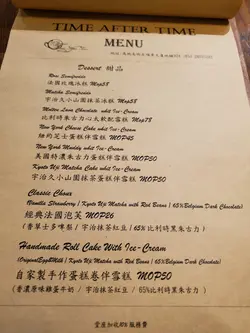 TIME AFTER TIME
MENU
Dessert 甜品
Rose Semifreddo
法國玫瑰冰糕 Mop58
Matcha Semifreddo
宇治久小山園抹茶冰糕 Mop58
Molten Lava Chocolate whit Ice-Cream
比利時朱古力心太軟配雪糕 Mop78
New York Cheese Cake whit Ice-Cream
紐約芝士蛋糕伴雪糕 MOP45
New York Muddy whit Ice-Cream
美國特濃朱古力蛋糕伴雪糕 MOP50
Kyoto Uji Matcha Cake whit Ice-Cream
宇治久小山園抹茶蛋糕伴雪糕 MOP50
Classic Choux
(Vanilla Strawberry | Kyoto Uji Matcha with Red Beans | 65%Belgium Dark Chocolate)
經典法國泡芙 MOP26
(香草士多啤梨 / 宇治抹茶紅豆 / 65%比利時黑朱古力)
Handmade Roll Cake With Ice-Cream
(Original(Egg&Milk) | Kyoto Uji Matcha with Red Beans | 65%Belgium Dark Chocolate)
自家製手作蛋糕卷伴雪糕 MOP50
(香濃原味雞蛋牛奶 / 宇治抹茶紅豆 / 65%比利時黑朱古力)
堂座加收10% 服務費